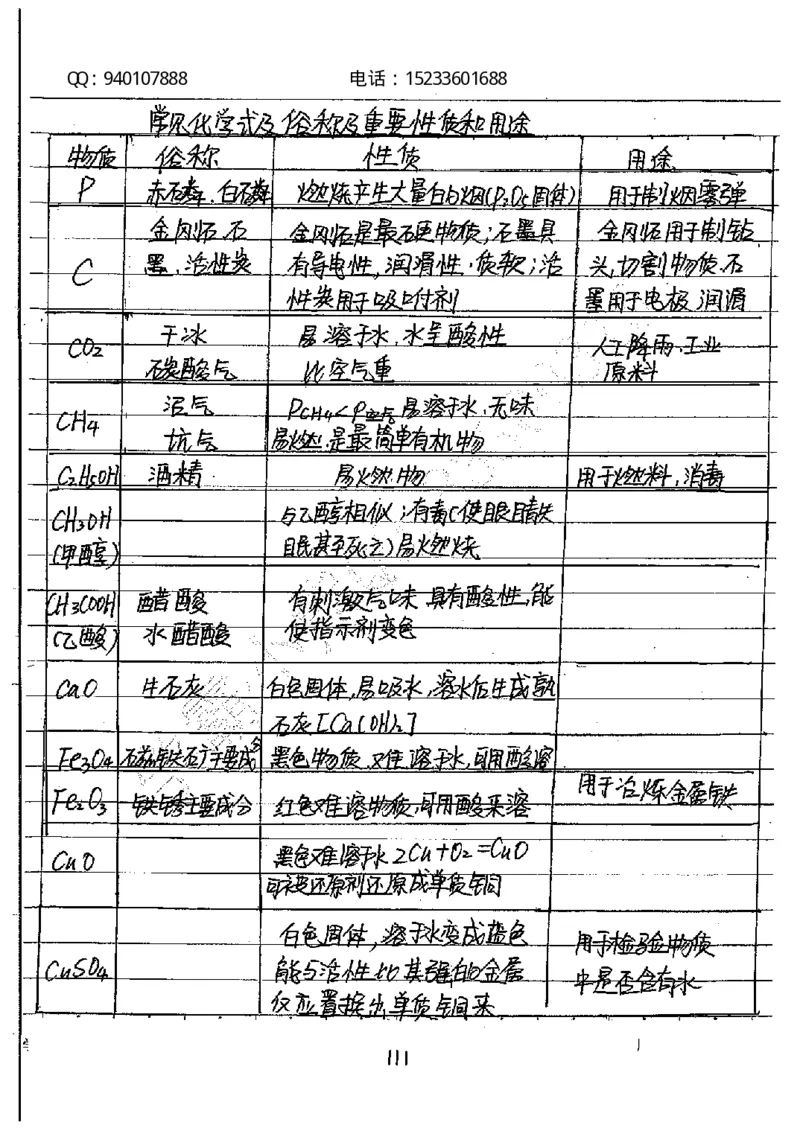 QQ：940107888 电话：15233601688
常见化学式及俗称及重要性质和用途
物质 俗称 性质 用途
P 赤石磷、白石磷 燃烧产生大量白烟(P₂O₅固体) 用于制烟雾弹
金刚石、石 金刚石是最石硬物质；石墨具 金刚石用于制钻
C 墨、活性炭 有导电性,润滑性·质软；活 头,切割物质.石
性炭用于吸附剂 墨用于电极,润滑
CO₂ 干冰 易溶于水,水呈酸性 人工降雨、工业
碳酸气 比空气重 原料
CH₄ 沼气 ρCH₄<ρ空气 易溶于水、无味
坑气 易燃,是最简单有机物
C₂H₅OH 酒精 易燃物 用于燃料,消毒
CH₃OH 与乙醇相似；有毒(使眼睛失
(甲醇) 眠甚至死亡)易燃烧
CH₃COOH 醋酸 有刺激气味,具有酸性,能
(乙酸) 水醋酸 使指示剂变色
CaO 生石灰 白色固体,易吸水,溶水后生成熟
石灰[Ca(OH)₂]
Fe₃O₄ 磁铁矿主要成分 黑色物质,难溶于水,可用酸溶
Fe₂O₃ 铁锈主要成分 红色难溶物质,可用酸来溶 用于冶炼金属铁
CuO 黑色难溶于水 2Cu+O₂=CuO
可被还原剂还原成单质铜
白色固体,溶于水变成蓝色 用于检验物质
CuSO₄ 能与活性比其强的金属 中是否含有水
仅应置换出单质铜来
111